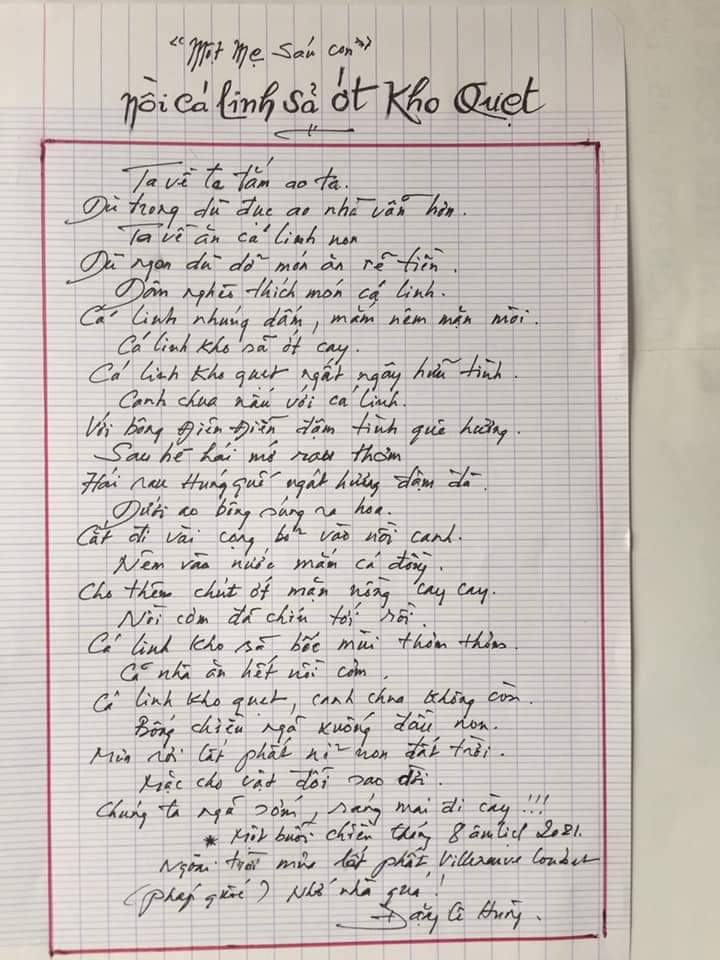 "Một Mẹ Sáu con"
Nồi cá linh sả ớt kho quẹt
Ta về ta tắm ao ta.
Dù trong dù đục ao nhà vẫn hơn.
Ta về ăn cá linh non
Dù ngon dù dở món ăn rẽ tiền.
Dân nghèo thích món cá linh.
Cá linh nhúng dấm, mắm nêm mặn mòi.
Cá linh kho sả ớt cay.
Cá linh kho quẹt ngất ngây hữu tình.
Canh chua nấu với cá linh.
Với bông Điên Điển đậm tình quê hương.
Sau hè hái mớ rau thơm
Hái rau Húng quế ngát hương đậm đà.
Dưới ao bông súng ra hoa.
Cắt đi vài cọng bỏ vào nồi canh.
Nêm vào nước mắm cá đồng.
Cho thêm chút ớt mặn nồng cay cay.
Nồi cơm đã chín tới rồi.
Cá linh kho sả bốc mùi thơm thơm.
Cả nhà ăn hết nồi cơm.
Cá linh kho quẹt, canh chua không còn.
Bóng chiều ngã xuống đầu non.
Mưa rơi lất phất nỉ non đất trời.
Mặc cho vật đổi sao dời.
Chúng ta ngũ sớm, sáng mai đi cày!!!
* Một buổi chiều tháng 8 âm lịch 2021.
Ngoài trời mưa lất phất Villeneuve Loubet
(pháp quốc) Nhớ nhà quá!
Đặng Hùng.